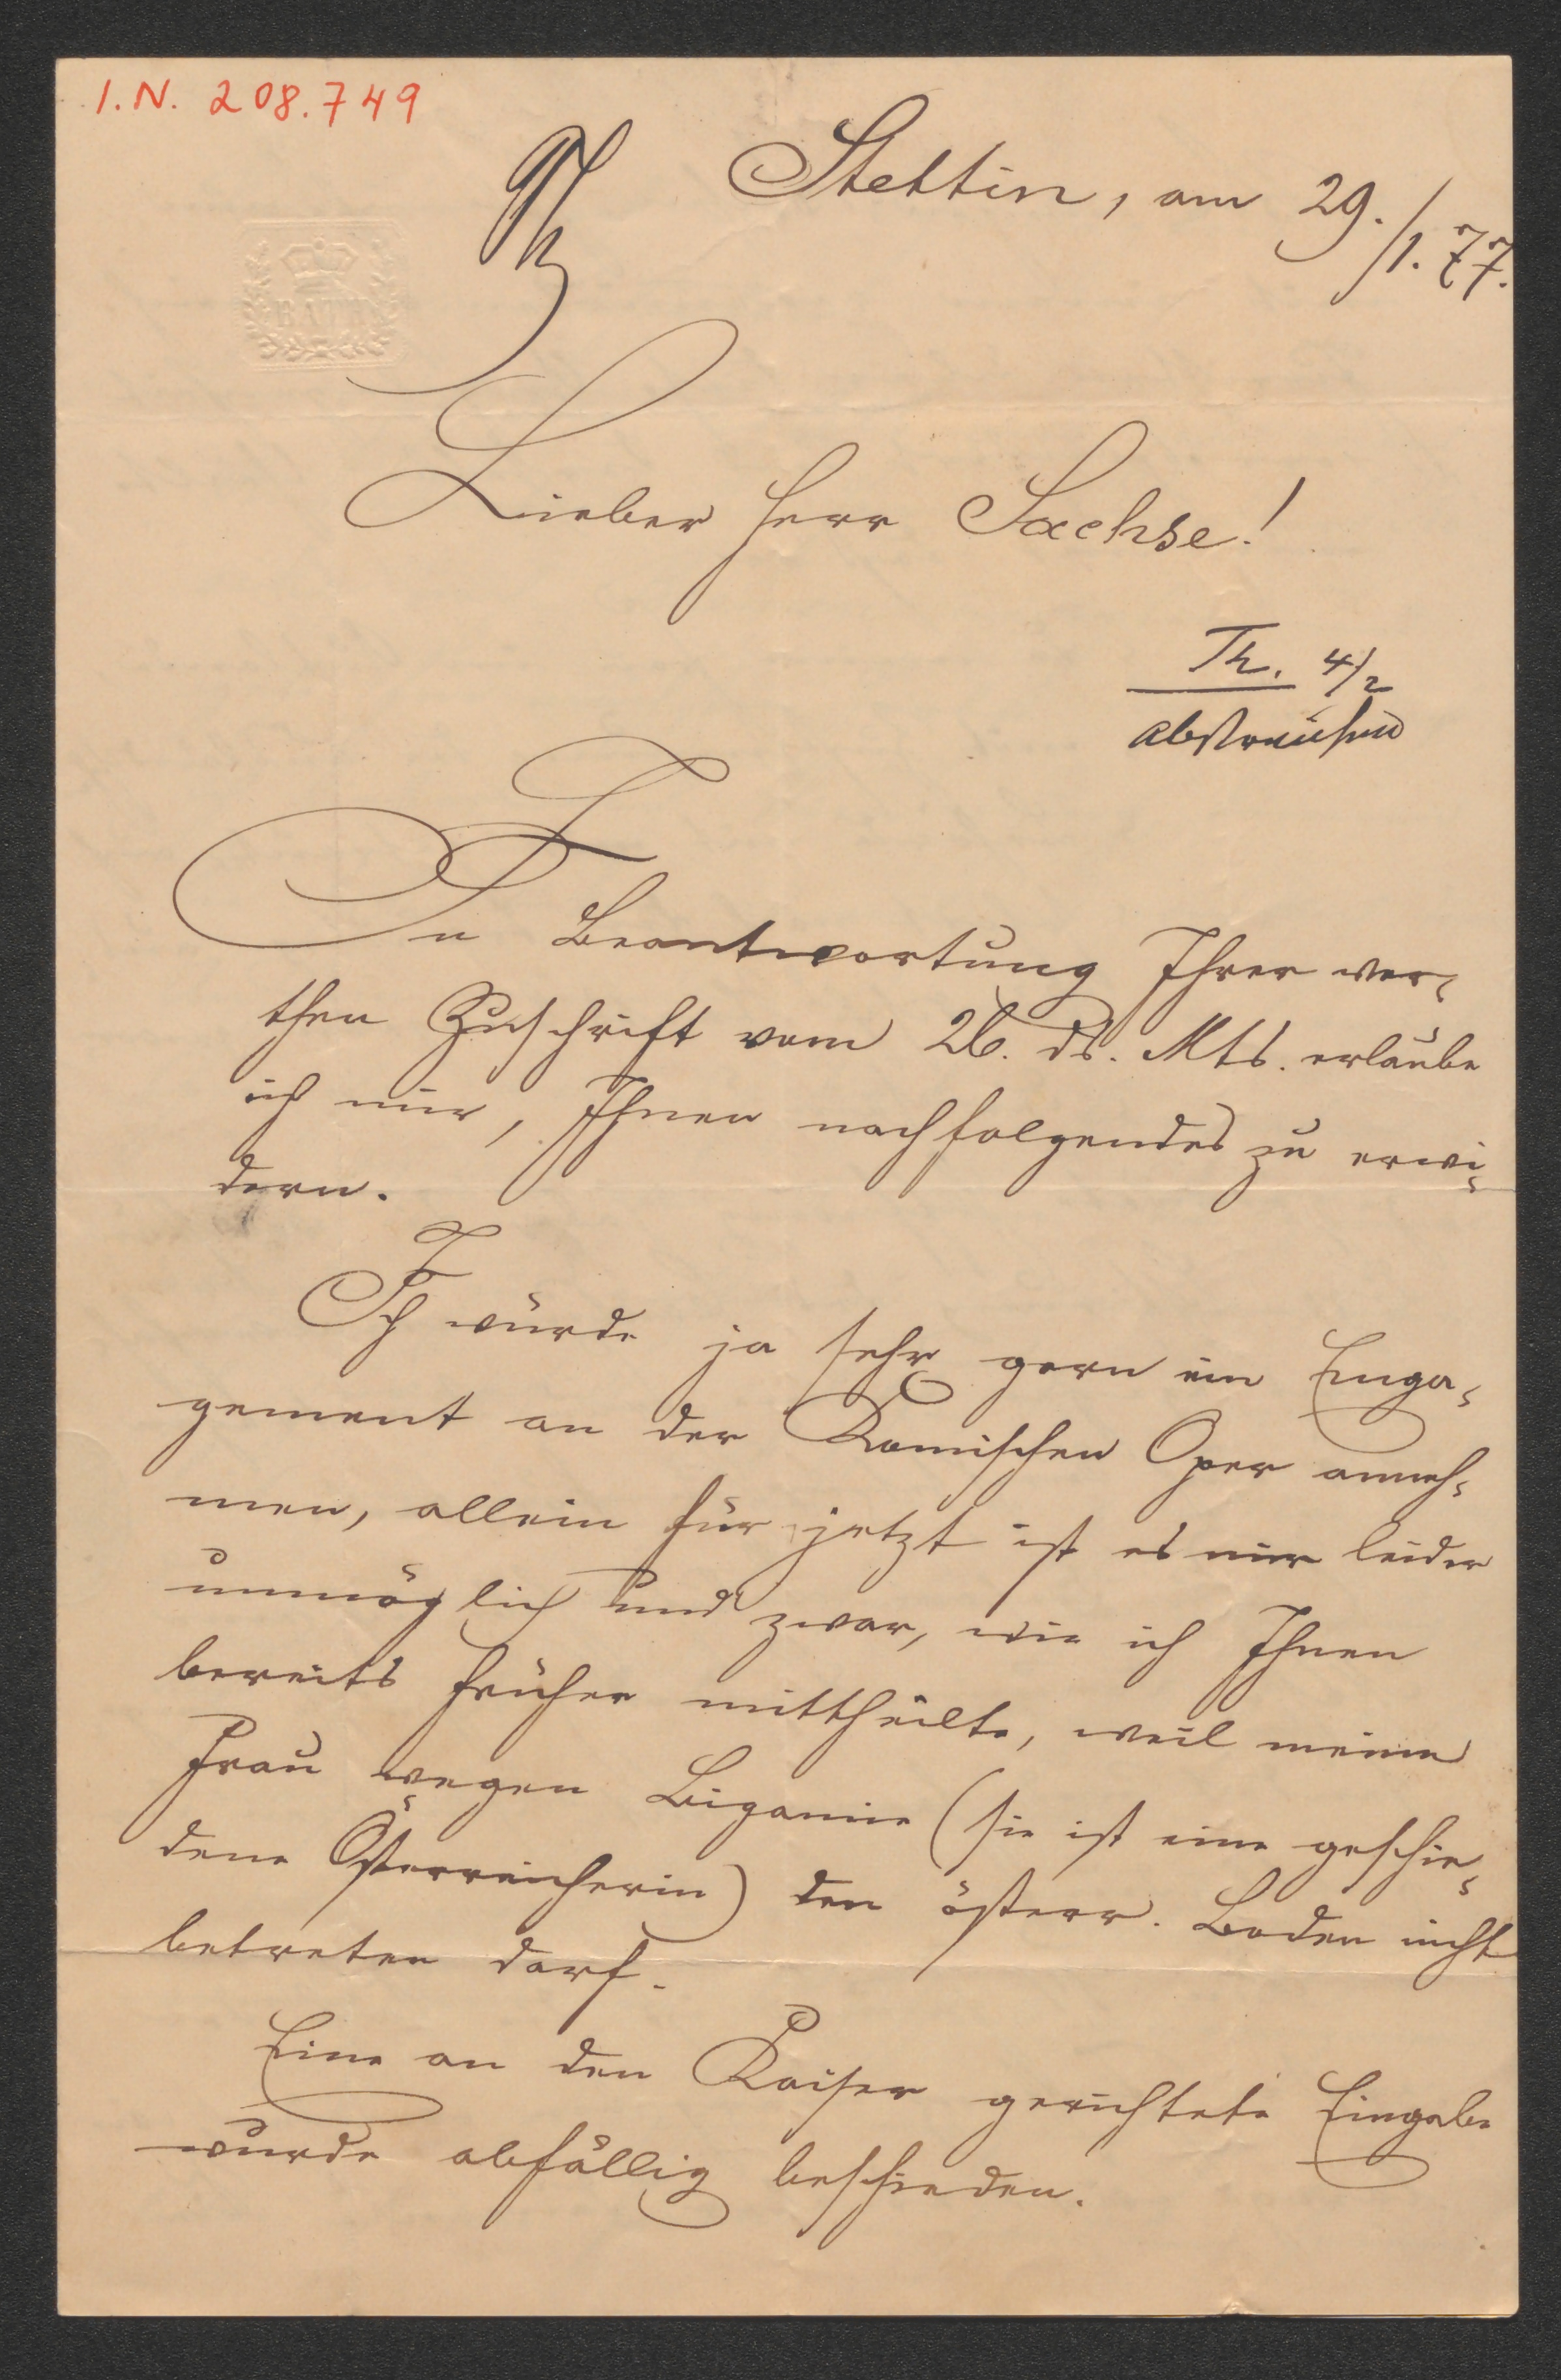 I.N. 208.749
Stettin, am 29./1.77.
BATH
Lieber Herr Sachse!
Th. 4/2
In Beantwortung Ihrer wer-
then Zuschrift vom 26. ds. Mts. erlaube
ich mir, Ihnen nachfolgendes zu erwi-
dern.
Ich würde ja sehr gern ein Enga-
gement an der Komischen Oper anneh-
men, allein für jetzt ist es mir leider
unmöglich und zwar, wie ich Ihnen
bereits früher mittheilte, weil meine
Frau wegen Bigamie (sie ist eine geschie-
dene Österreicherin) den österr. Boden nicht
betreten darf.
Eine an den Kaiser gerichtete Eingabe
wurde abfällig beschieden.